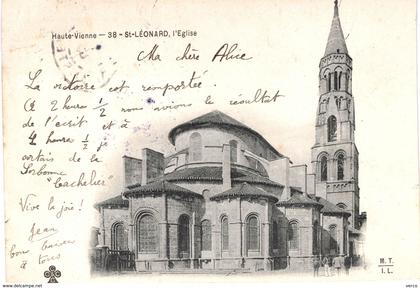 Haute-Vienne - 38 - St-LÉONARD, l'Eglise
Ma chère Alice
La victoire est remportée.
à 2 heure ½ nous avions le résultat
de l'écrit et à
4 heure ½ je
sortais de la
Sorbonne
"bachelier"
Vive la joie !
Jean
bons baisers
à tous
M.T.
I.L.